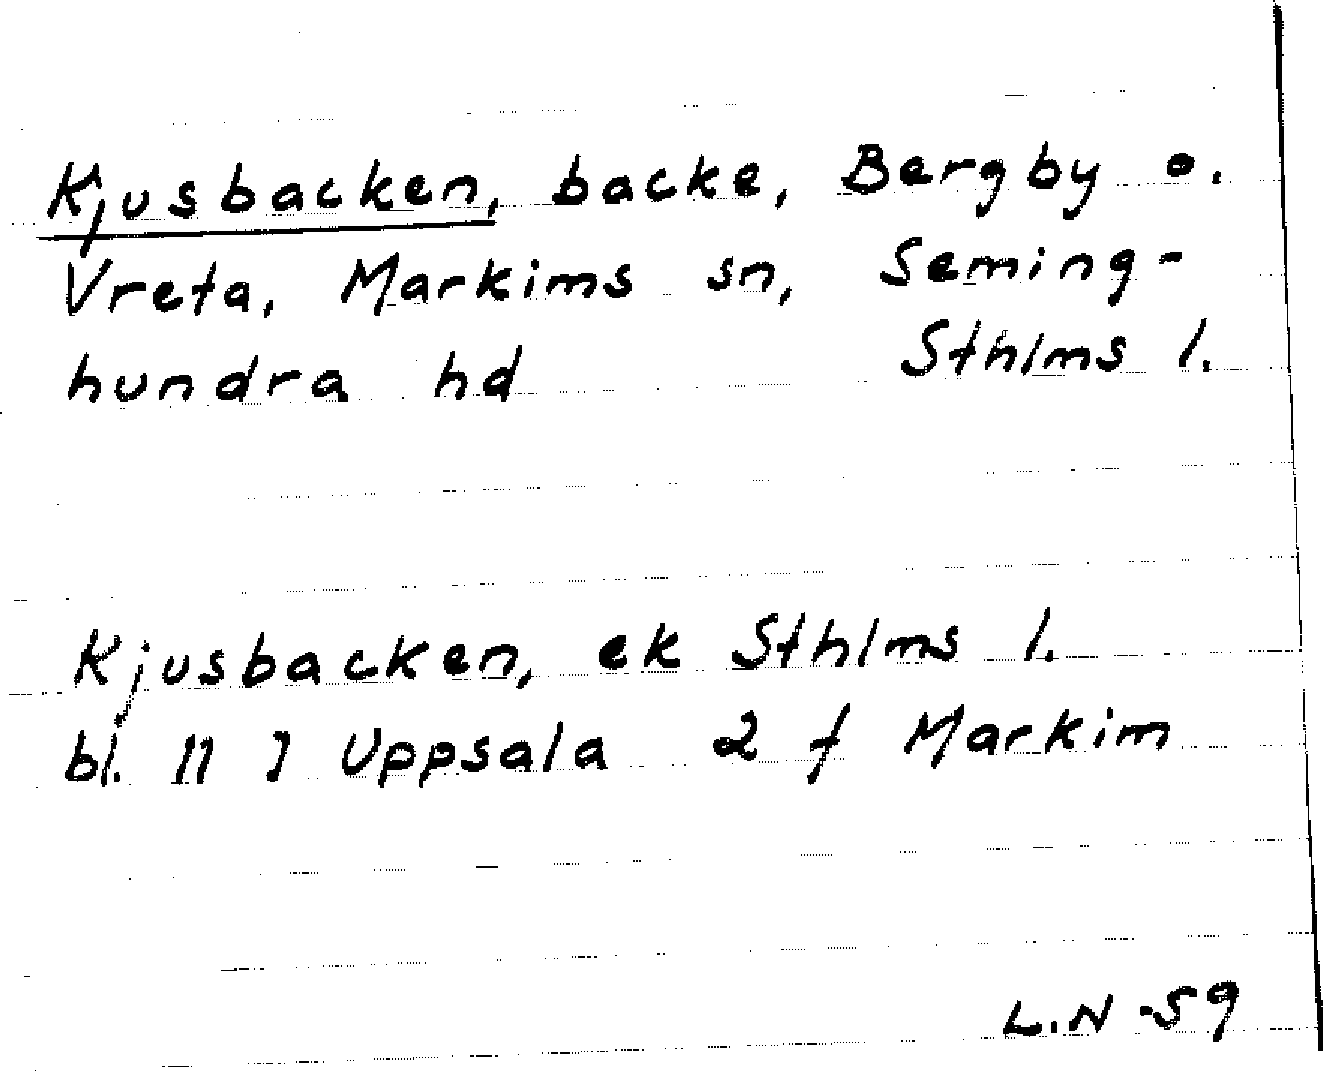 Kjusbacken, backe, Bergby o.
Vreta, Markims sn, Seming-
hundra hd Sthlms l.
Kjusbacken, ek Sthlms l.
bl. 11 I Uppsala 2 f Markim
L.N -59